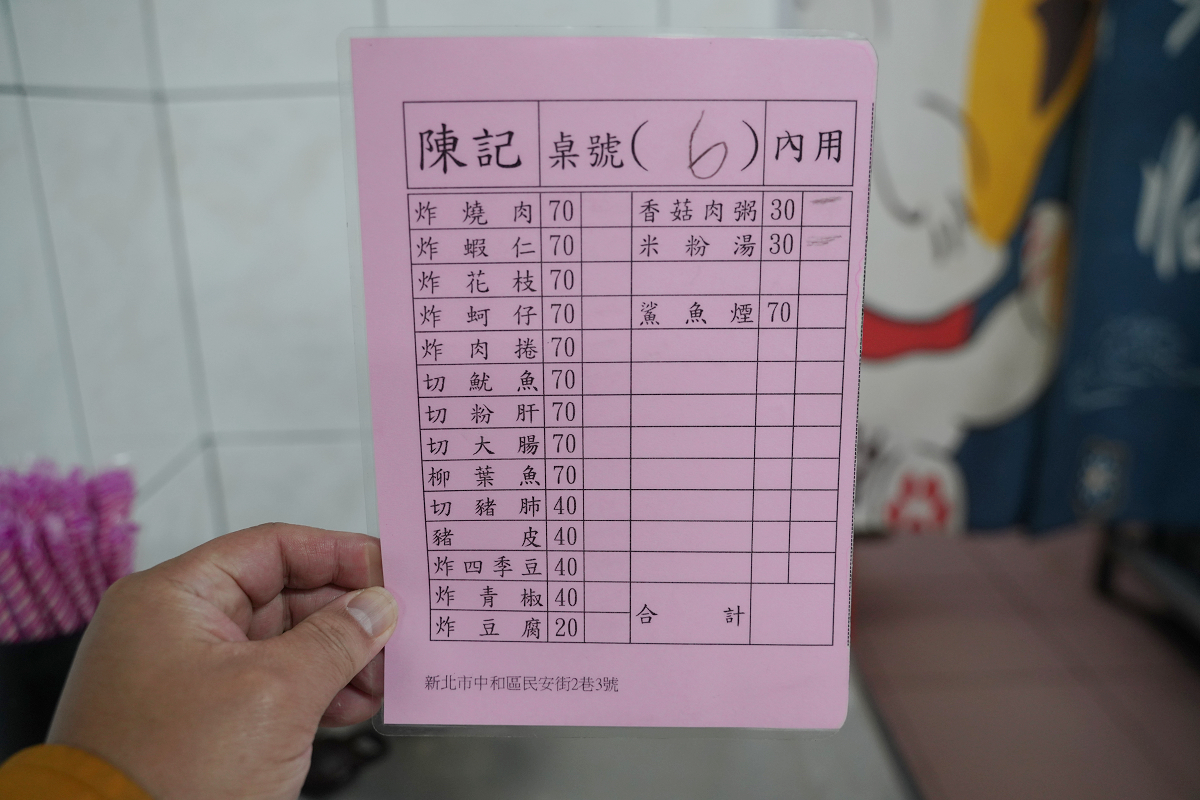 陳記 桌號( 6 ) 內用
炸燒肉 70 香菇肉粥 30 一
炸蝦仁 70 米粉湯 30
炸花枝 70
炸蚵仔 70 鯊魚煙 70
炸肉捲 70
切魷魚 70
切粉肝 70
切大腸 70
柳葉魚 70
切豬肺 40
豬皮 40
炸四季豆 40
炸青椒 40 合計
炸豆腐 20
新北市中和區民安街2巷3號